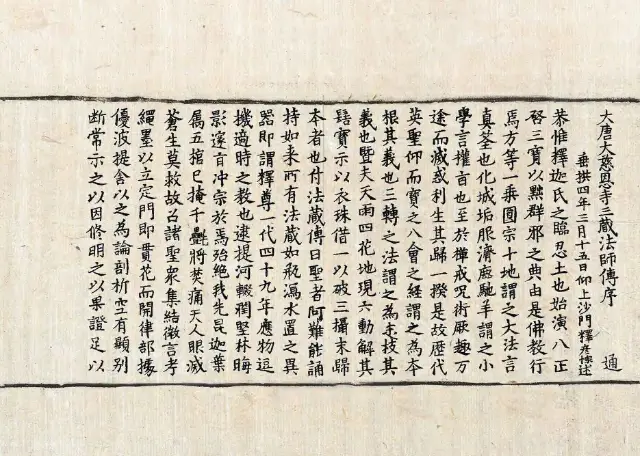 大唐大慈恩寺三藏法師傳序 通
垂拱四年三月十五日仰上沙門釋彥悰述
恭惟釋迦氏之臨忍土也始演八正
啓三寶以黜群邪之典由是佛教行
焉方等一乘圓宗十地謂之大法言
真荃也化城垢服濟鹿馳羊謂之小
學言權旨也至於禪戒咒術厥趣万
途而滅惑利生其歸一揆是故歷代
英聖仰而寶之八會之經謂之為本
根其義也三轉之法謂之為末枝其
義也暨夫天雨四花地現六動解其
髻寶示以衣珠借一以破三攝末歸
本者也付法藏傳曰聖者阿難能誦
持如来所有法藏如瓶瀉水置之異
器即謂釋尊一代四十九年應物逗
機適時之教也逮提河輟潤堅林晦
影邃旨冲宗於焉殆絕我先昆迦葉
屬五棺已掩千㲲將焚痛天人眼滅
蒼生莫救故召諸聖衆集結微言考
繩墨以立定門即貫花而開律部據
優波提舍以之為論剖析空有顯別
斷常示之以因修明之以果證足以